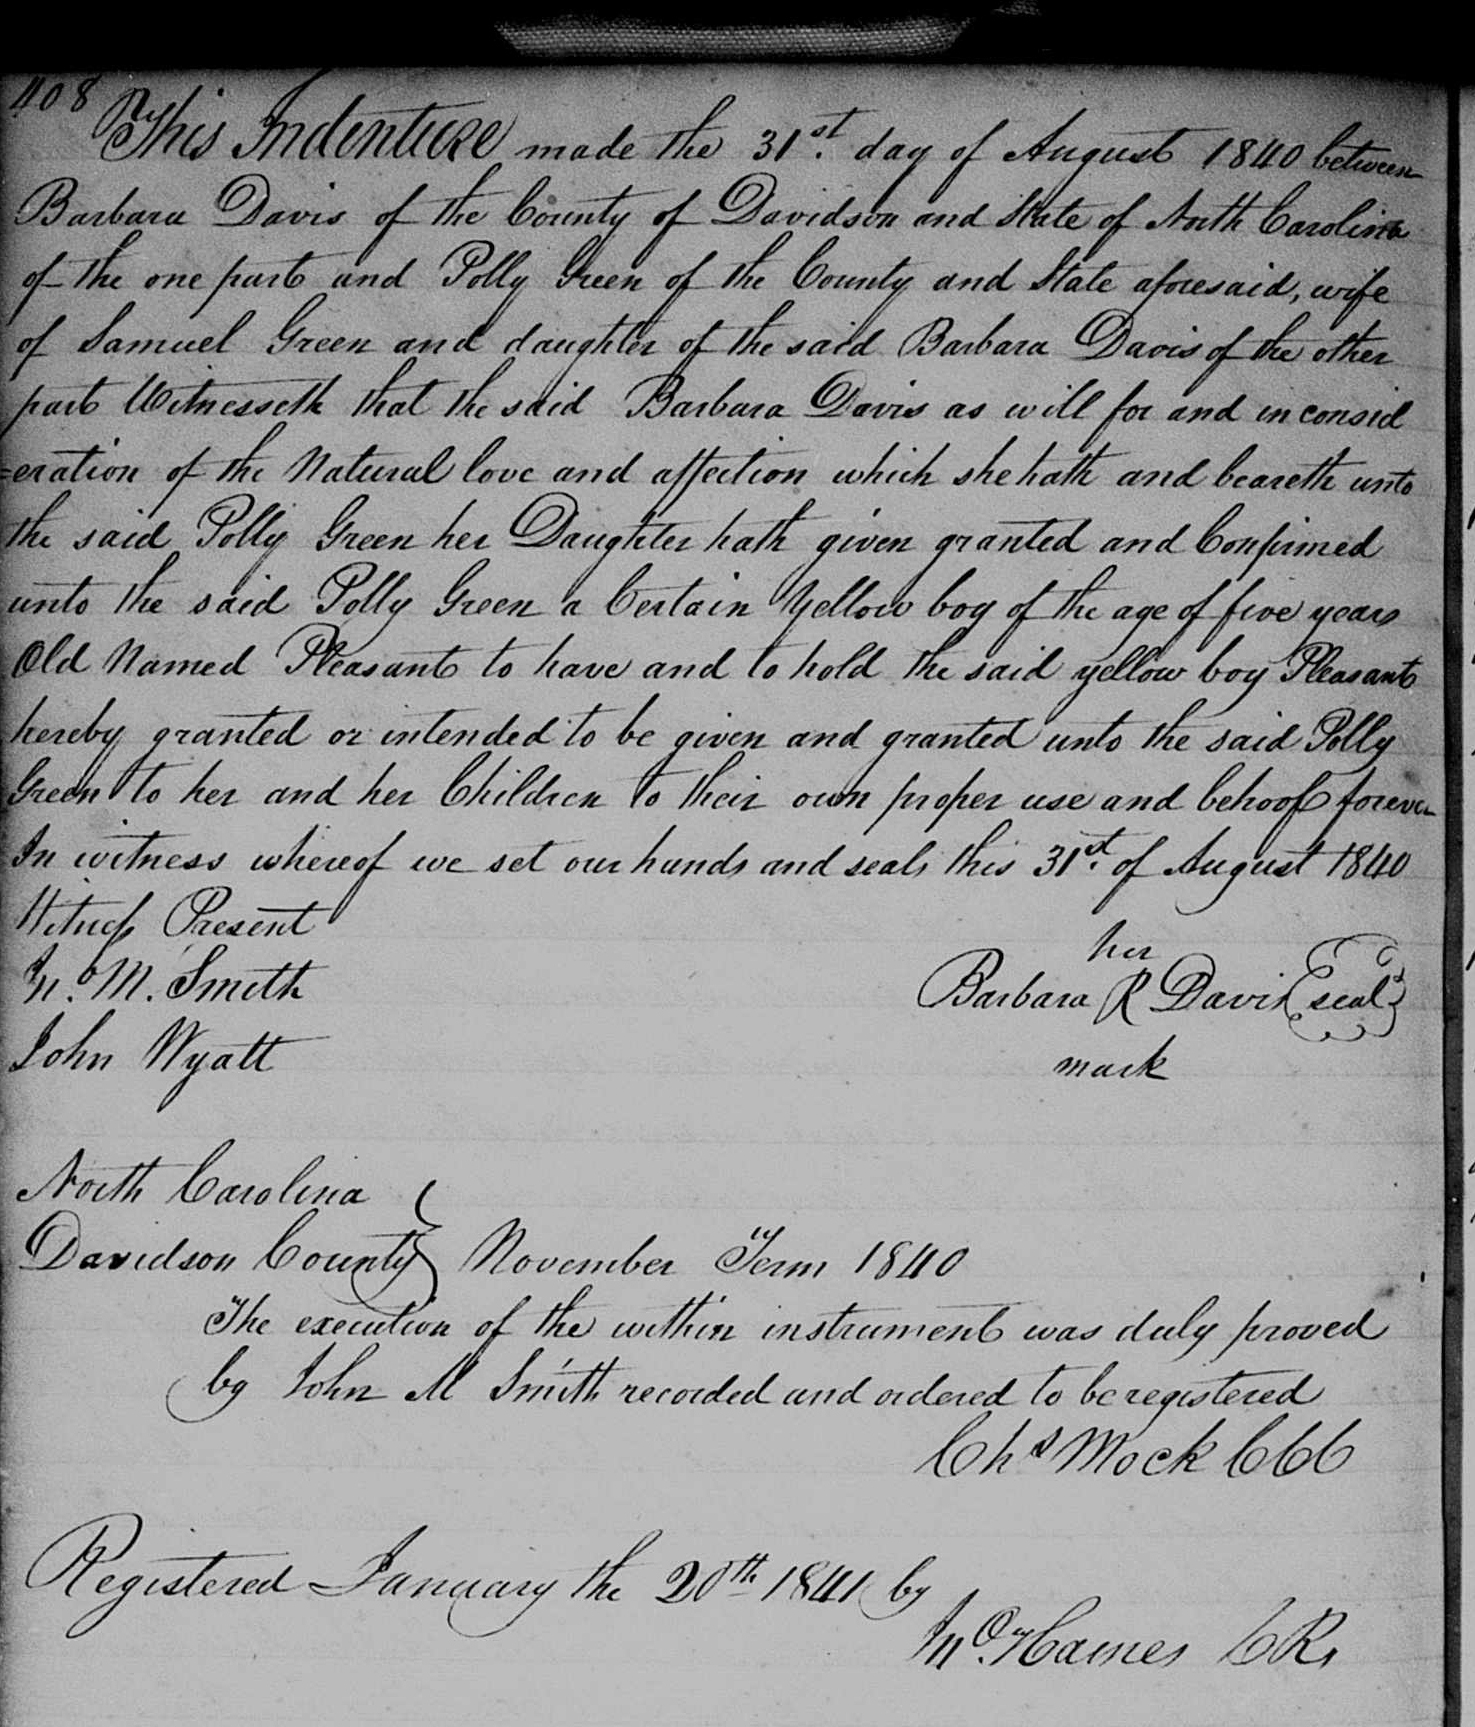 408
This Indenture made the 31st. day of August 1840 between
Barbara Davis of the County of Davidson and State of North Carolina
of the one part and Polly Green of the County and State aforesaid, wife
of Samuel Green and daughter of the said Barbara Davis of the other
part Witnesseth that the said Barbara Davis as will for and in consid
=eration of the Natural love and affection which she hath and beareth unto
the said Polly Green her Daughter hath given granted and Confirmed
unto the said Polly Green a Certain Yellow boy of the age of five years
Old Named Pleasant to have and to hold the said yellow boy Pleasant
hereby granted or intended to be given and granted unto the said Polly
Green to her and her Children to their own proper use and behoof forever
In witness whereof we set our hands and seals this 31st. of August 1840
Witness Present
her
Jno. M. Smith
Barbara R Davis seal
John Wyatt
mark
North Carolina
Davidson County November Term 1840
The execution of the within instrument was duly proved
by John M Smith recorded and ordered to be registered
Chs Mock CCC
Registered January the 20th 1841 by
Jno. Haines CR,